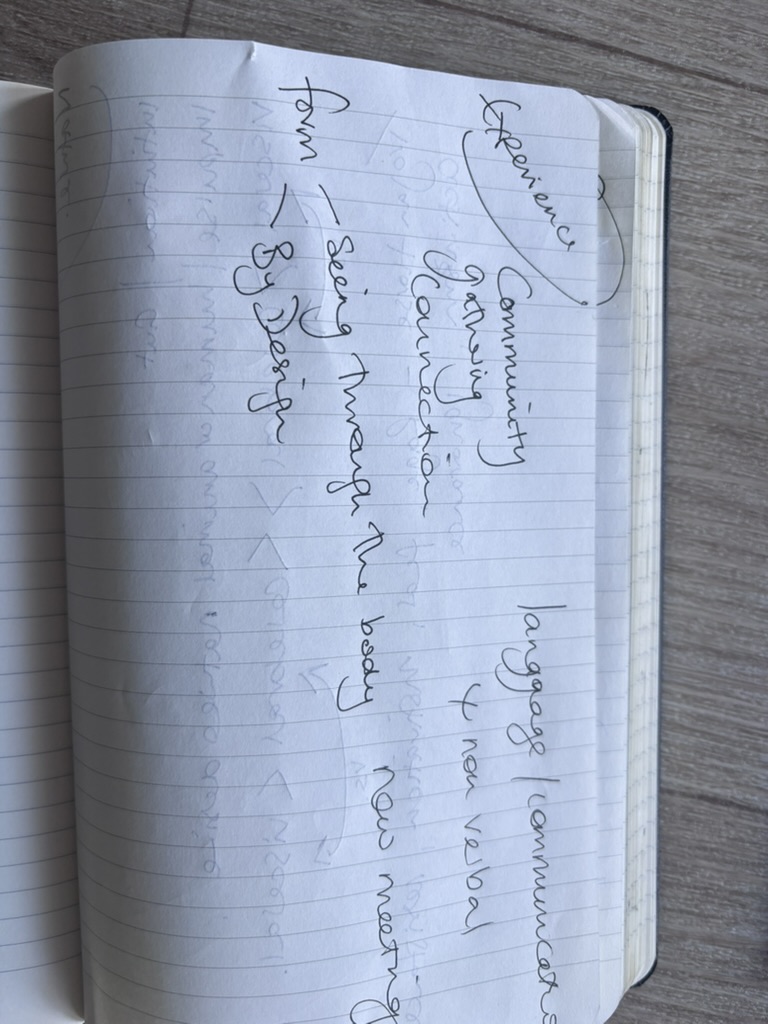 Experience
Community
gathering
Connection
language / communicatio
+ non verbal
form - Seeing through the body
now meeting
< By Design